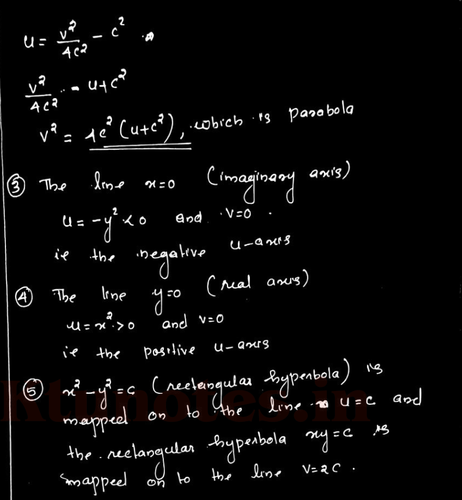 u = v²/4c² - c²
v²/4c² = u+c²
v² = 4c² (u+c²), which is parabola
③ The line x=0 (imaginary axis)
u = -y² < 0 and v=0.
ie the negative u-axis
④ The line y=0 (real axis)
u = x² > 0 and v=0
ie the positive u-axis
⑤ x²-y²=c (rectangular hyperbola) is
mapped on to the line u=c and
the rectangular hyperbola xy=c is
mapped on to the line v=2c.